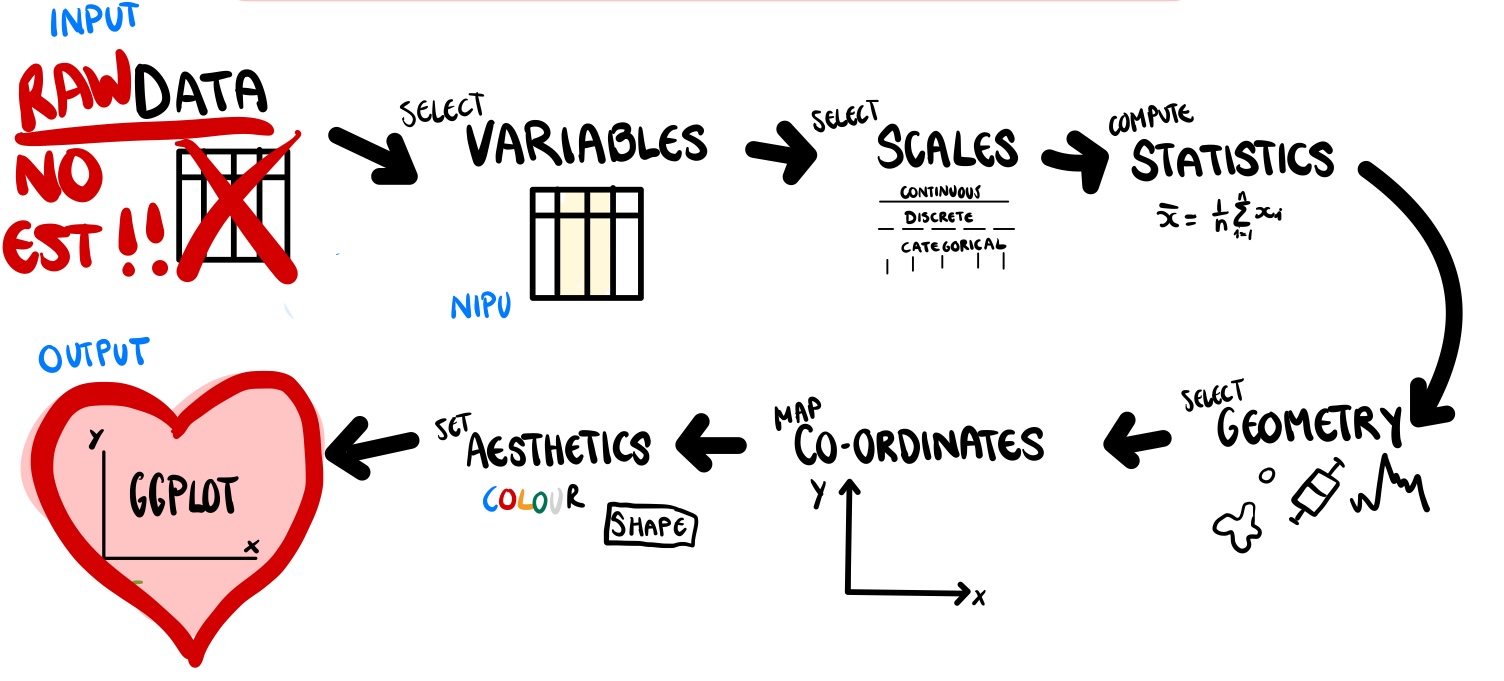 INPUT
RAWDATA
NO
EST !!
SELECT
VARIABLES
NIPU
SELECT
SCALES
CONTINUOUS
DISCRETE
CATEGORICAL
COMPUTE
STATISTICS
x̄ = 1/n Σ xi
n
i=1
SELECT
GEOMETRY
MAP
CO-ORDINATES
Y
X
SET
AESTHETICS
COLOUR
SHAPE
OUTPUT
Y
GGPLOT
X